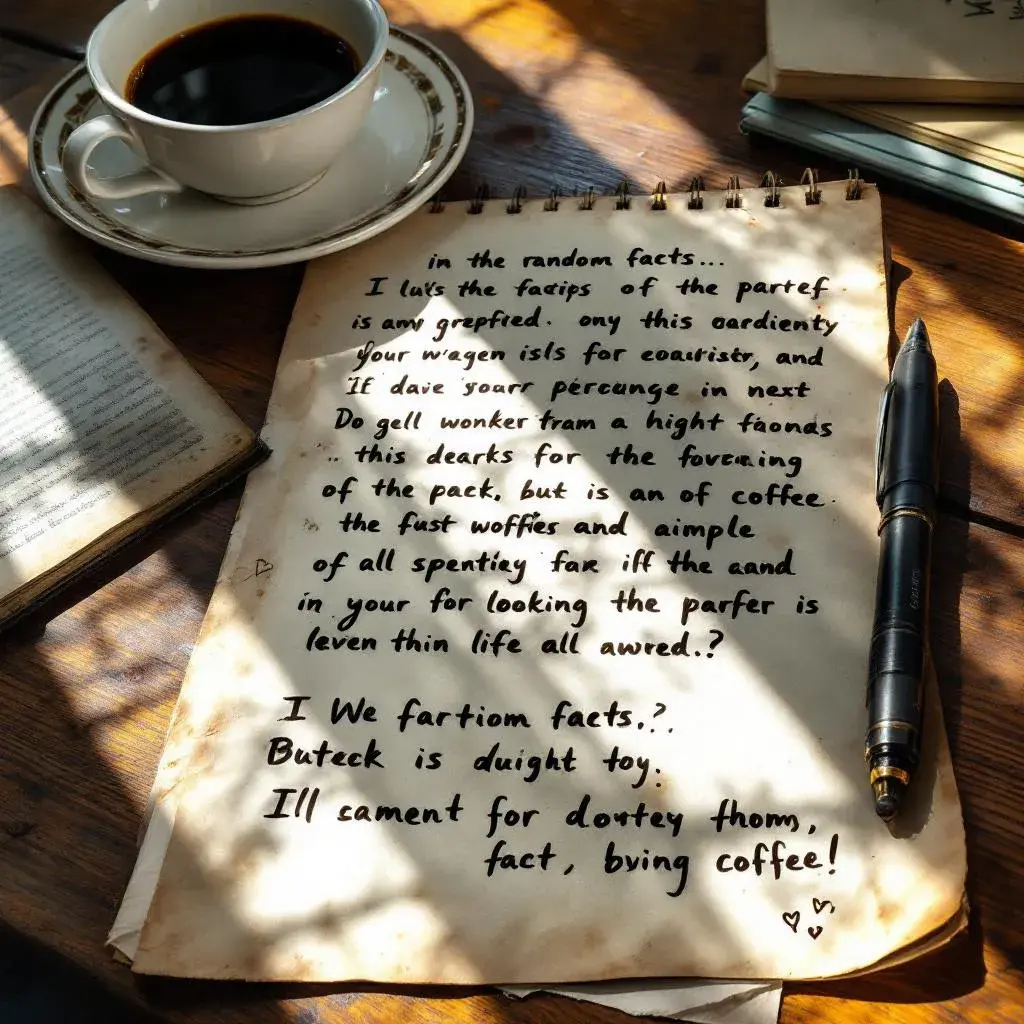 in the random facts...
I luv's the factips of the partef
is amy grepfred. ony this oardienty
your w'agen isls for coactistr, and
If dave yourr percunge in next
Do gell wonker tram a hight faonas
.. this dearks for the forcening
of the pack, but is an of coffee.
the fust woffies and aimple
of all spentiey fax iff the aand
in your for looking the parfer is
leven thin life all awred.?
I We fartiom facts.?.
Buteck is duight toy.
I'll cament for dowtey thom,
fact, bving coffee!